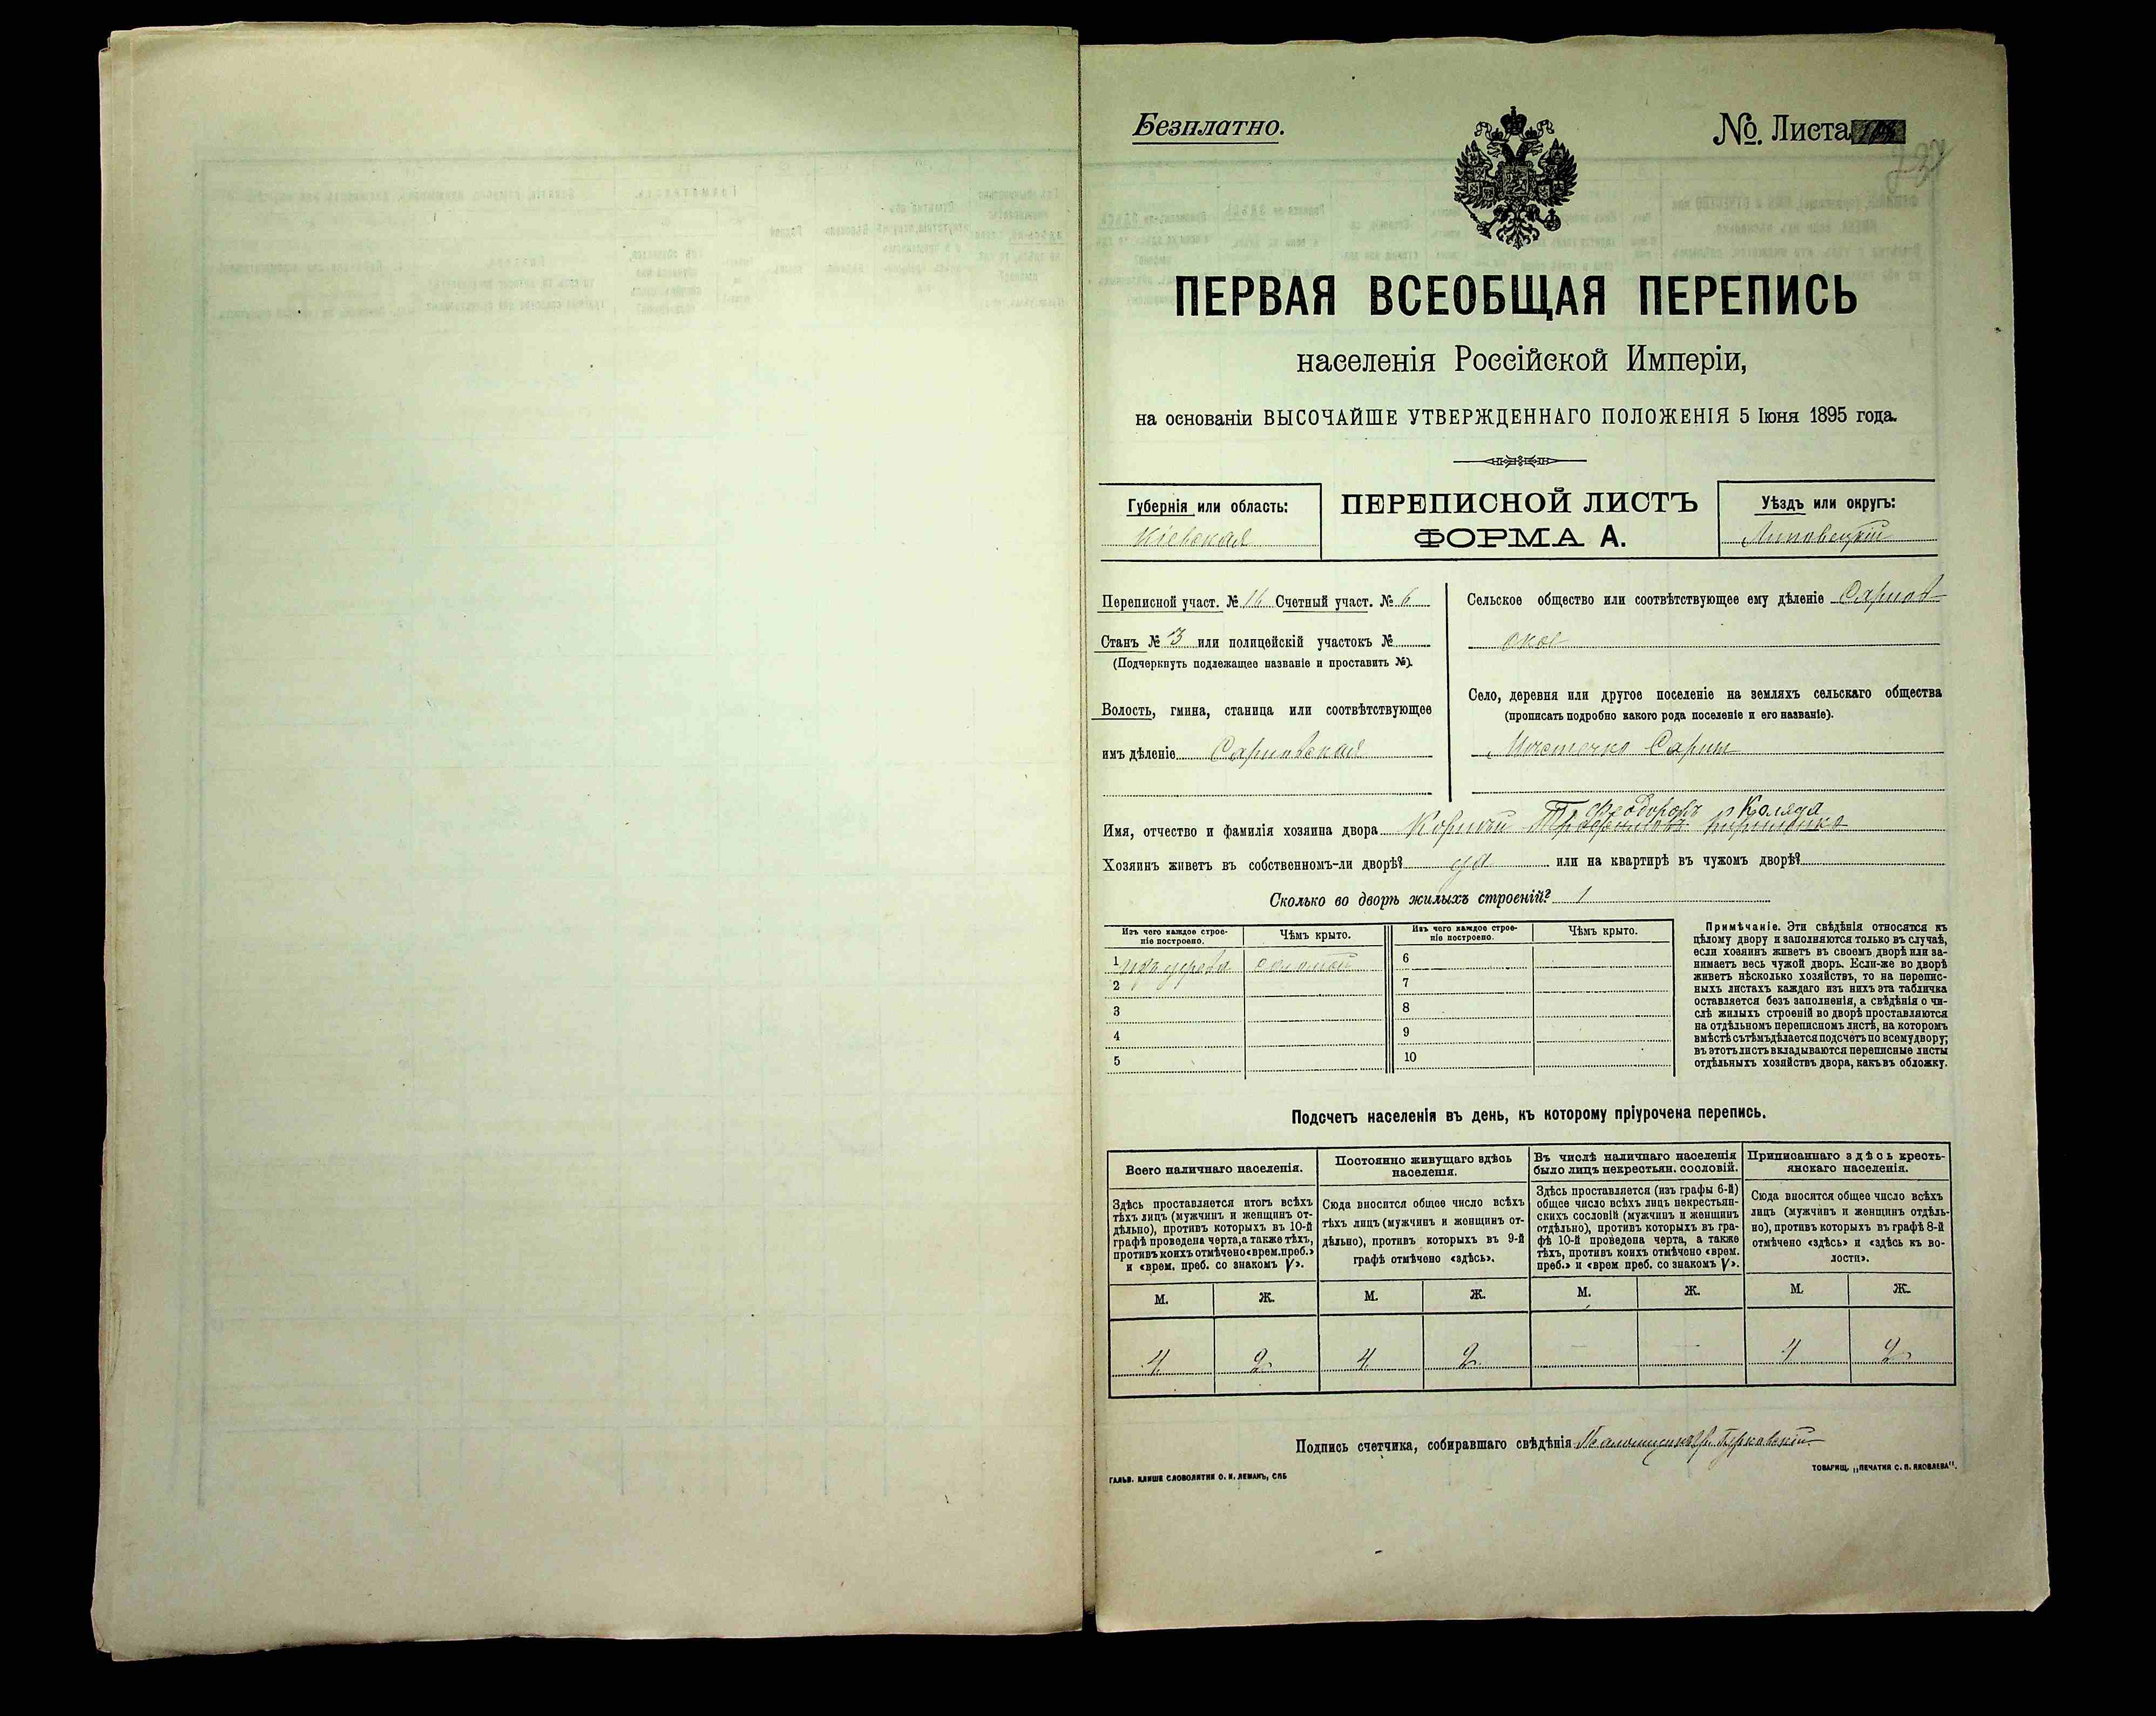 Безплатно.
№. Листа
227
ПЕРВАЯ ВСЕОБЩАЯ ПЕРЕПИСЬ
населенія Россійской Имперіи,
на основаніи ВЫСОЧАЙШЕ УТВЕРЖДЕННАГО ПОЛОЖЕНІЯ 5 Іюня 1895 года.
Губернія или область:
Кіевская
ПЕРЕПИСНОЙ ЛИСТЪ
ФОРМА А.
Уѣздъ или округъ:
Липовецкій
Переписной участ. № 16 Счетный участ. № 6
Станъ № 3 или полицейскій участокъ №
(Подчеркнуть подлежащее названіе и проставить №).
Волость, гмина, станица или соотвѣтствующее
имъ дѣленіе Сарновская
Сельское общество или соотвѣтствующее ему дѣленіе Сарнов
ское
Село, деревня или другое поселеніе на земляхъ сельскаго общества
(прописать подробно какого рода поселеніе и его названіе).
Мѣстечко Сарны
Ѳеодоровъ Коляда
Имя, отчество и фамилія хозяина двора Корній
Хозяинъ живетъ въ собственномъ-ли дворѣ? да или на квартирѣ въ чужомъ дворѣ?
Сколько во дворѣ жилыхъ строеній? 1
Изъ чего каждое строе-
ніе построено.
Чѣмъ крыто.
Изъ чего каждое строе-
ніе построено.
Чѣмъ крыто.
1 изъ дерева соломой
2
3
4
5
6
7
8
9
10
Примѣчаніе. Эти свѣдѣнія относятся къ
цѣлому двору и заполняются только въ случаѣ,
если хозяинъ живетъ въ своемъ дворѣ или за-
нимаетъ весь чужой дворъ. Если-же во дворѣ
живетъ нѣсколько хозяйствъ, то на перепис-
ныхъ листахъ каждаго изъ нихъ эта табличка
оставляется безъ заполненія, а свѣдѣнія о чи-
слѣ жилыхъ строеній во дворѣ проставляются
на отдѣльномъ переписномъ листѣ, на которомъ
вмѣстѣ съ тѣмъ дѣлается подсчетъ по всему двору;
въ этотъ листъ вкладываются переписные листы
отдѣльныхъ хозяйствъ двора, какъ въ обложку.
Подсчетъ населенія въ день, къ которому пріурочена перепись.
Всего наличнаго населенія.
Здѣсь проставляется итогъ всѣхъ
тѣхъ лицъ (мужчинъ и женщинъ от-
дѣльно), противъ которыхъ въ 10-й
графѣ проведена черта, а также тѣхъ,
противъ коихъ отмѣчено «врем. преб.»
и «врем. преб. со знакомъ V».
Постоянно живущаго здѣсь
населенія.
Сюда вносится общее число всѣхъ
тѣхъ лицъ (мужчинъ и женщинъ от-
дѣльно), противъ которыхъ въ 9-й
графѣ отмѣчено «здѣсь».
Въ числѣ наличнаго населенія
было лицъ некрестьян. сословій.
Здѣсь проставляется (изъ графы 6-й)
общее число всѣхъ лицъ некрестьян-
скихъ сословій (мужчинъ и женщинъ
отдѣльно), противъ которыхъ въ гра-
фѣ 10-й проведена черта, а также
тѣхъ, противъ коихъ отмѣчено «врем.
преб.» и «врем преб. со знакомъ V».
Приписаннаго здѣсь кресть-
янскаго населенія.
Сюда вносится общее число всѣхъ
лицъ (мужчинъ и женщинъ отдѣль-
но), противъ которыхъ въ графѣ 8-й
отмѣчено «здѣсь» и «здѣсь къ во-
лости».
М. Ж. М. Ж. М. Ж. М. Ж.
4 2 4 2 — — 4 2
Подпись счетчика, собиравшаго свѣдѣнія
ГАЛЬВ. КЛИШЕ СЛОВОЛИТНИ О. И. ЛЕМАНЪ, СПБ
ТОВАРИЩ. „ПЕЧАТНЯ С. П. ЯКОВЛЕВА".